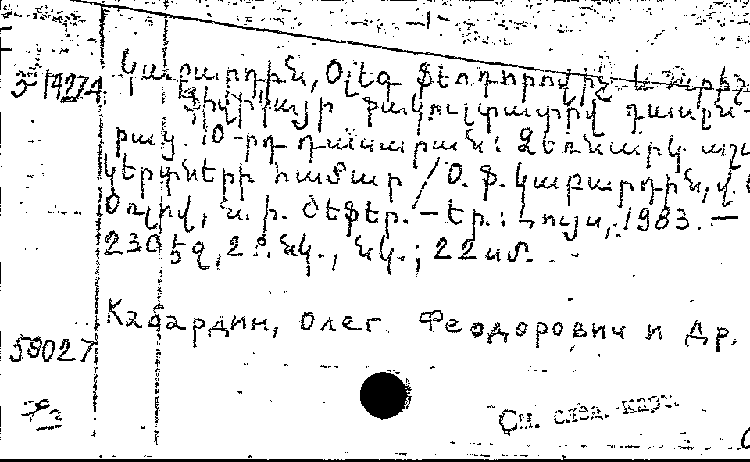 3-14274 Կաբարդին, Օլեգ Ֆեոդորովիչ և ուրիշ
Ֆիզիկայի ֆակուլտատիվ դասըն-
թաց. 10-րդ դասարան: Ձեռնարկ աշա-
կերտների համար / Օ. Ֆ. Կաբարդին, Վ.
Օռլով, Ն. Ի. Շեֆեր. — Եր.: Լույս, 1983. —
230 էջ, 2 թ. նկ., նկ.; 22 սմ.
Кабардин, Олег Феодорович и др.
59027
См. след. карт.